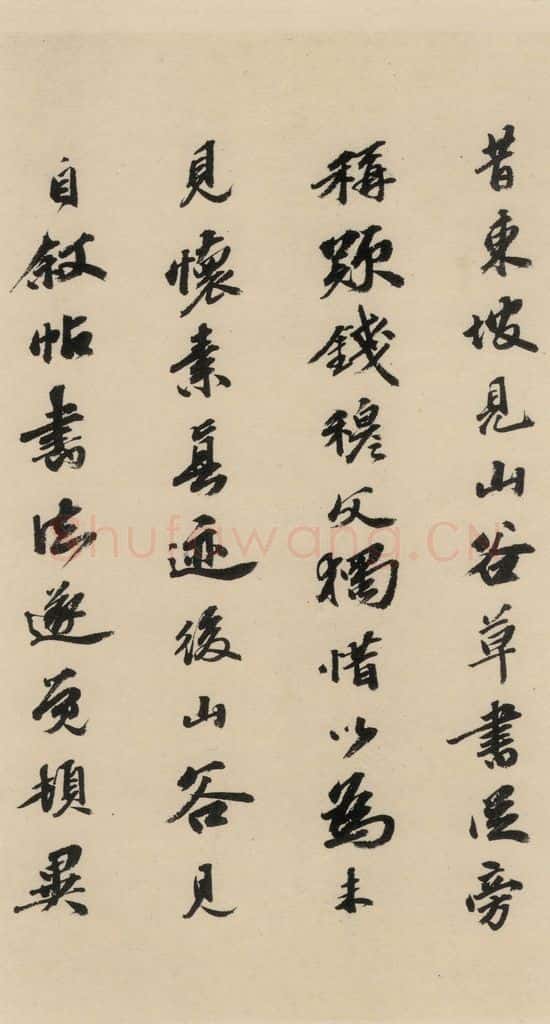 昔東坡見山谷草書從旁
稱歎錢穆父獨惜以為未
見懷素真迹後山谷見
自敘帖書法遂覺頓異
Shufawang.CN